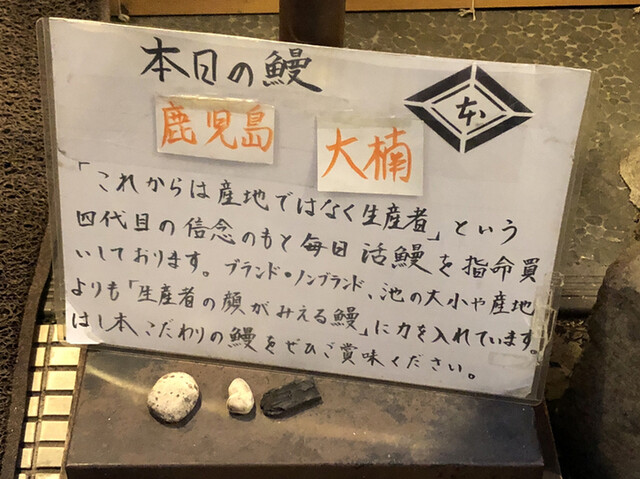 本日の鰻
本
鹿児島
大楠
「これからは産地ではなく生産者」という
四代目の信念のもと毎日活鰻を指命買
いしております。ブランド・ノンブランド、池の大小や産地
よりも「生産者の顔がみえる鰻」に力を入れています。
はし本こだわりの鰻をぜひご賞味ください。